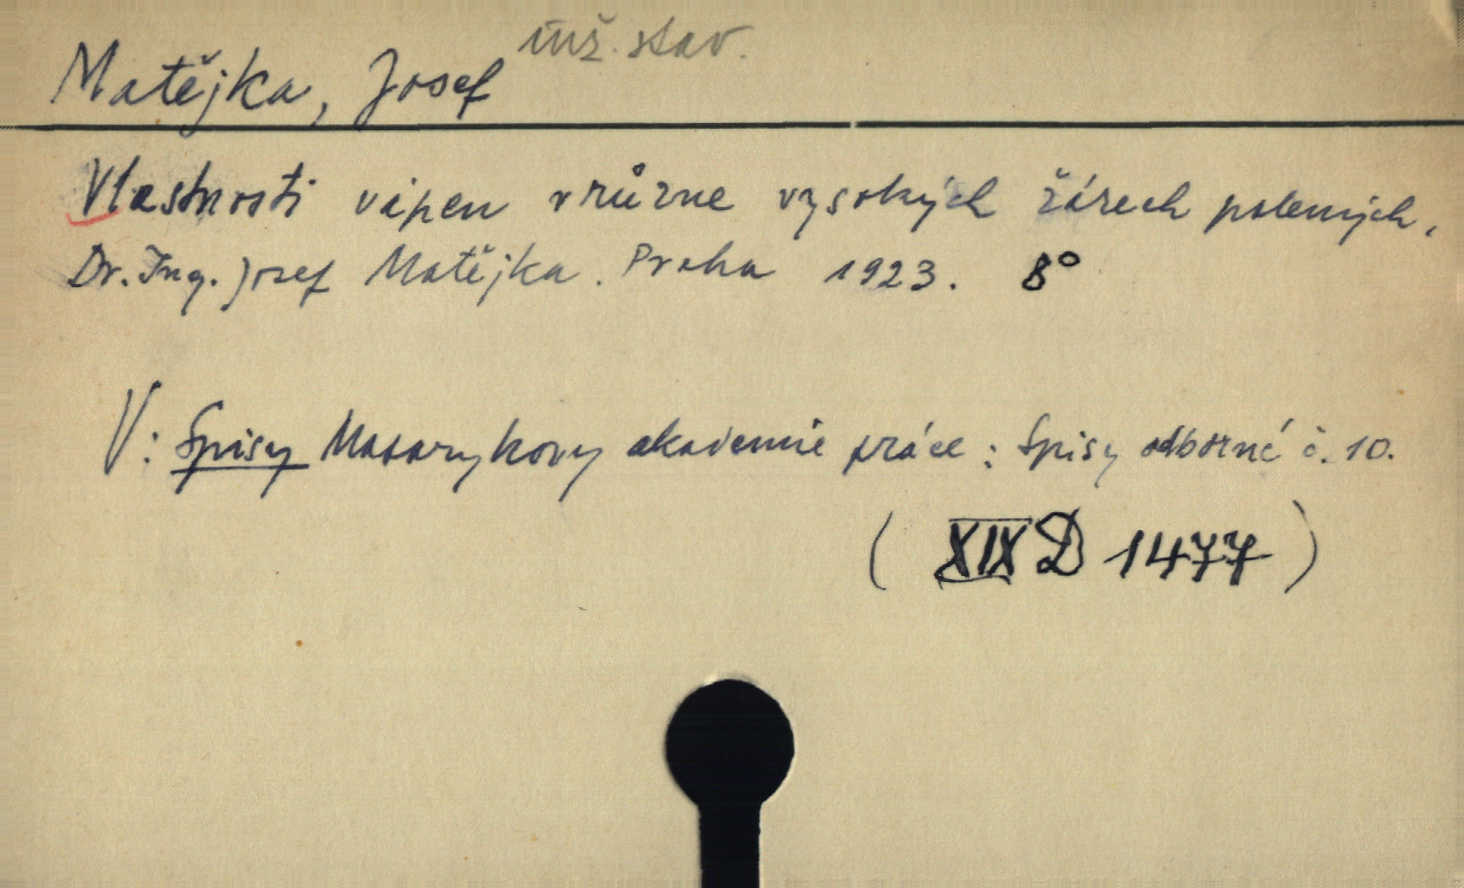 Matějka, Josef inž. stav.
Vlastnosti vápen v různe vysokých žárech pálených,
Dr. Ing. Josef Matějka. Praha 1923. 8°
V: Spisy Masarykovy akademie práce: Spisy odborné č. 10.
( XIX D 1477 )